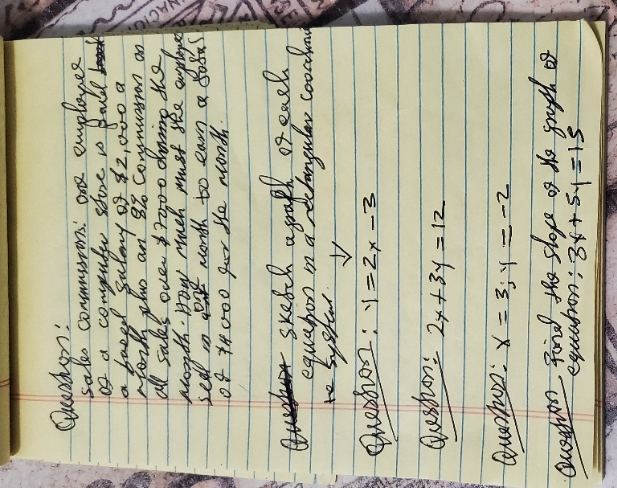 Question:
Sales Commissions: one employee
of a computer store is paid
a base salary of $2,000 a
month plus an 8% Commission on
all sales over $7000 during the
month. How much must the employee
sell in one month to earn a total
of $4000 for the month.
sketch a graph of each
equation in a rectangular coordinate
system.
Question: y=2x-3
Question: 2x+3y=12
Question: x=3; y=-2
Question Find the slope of the graph of
equation: 3x+5y=15